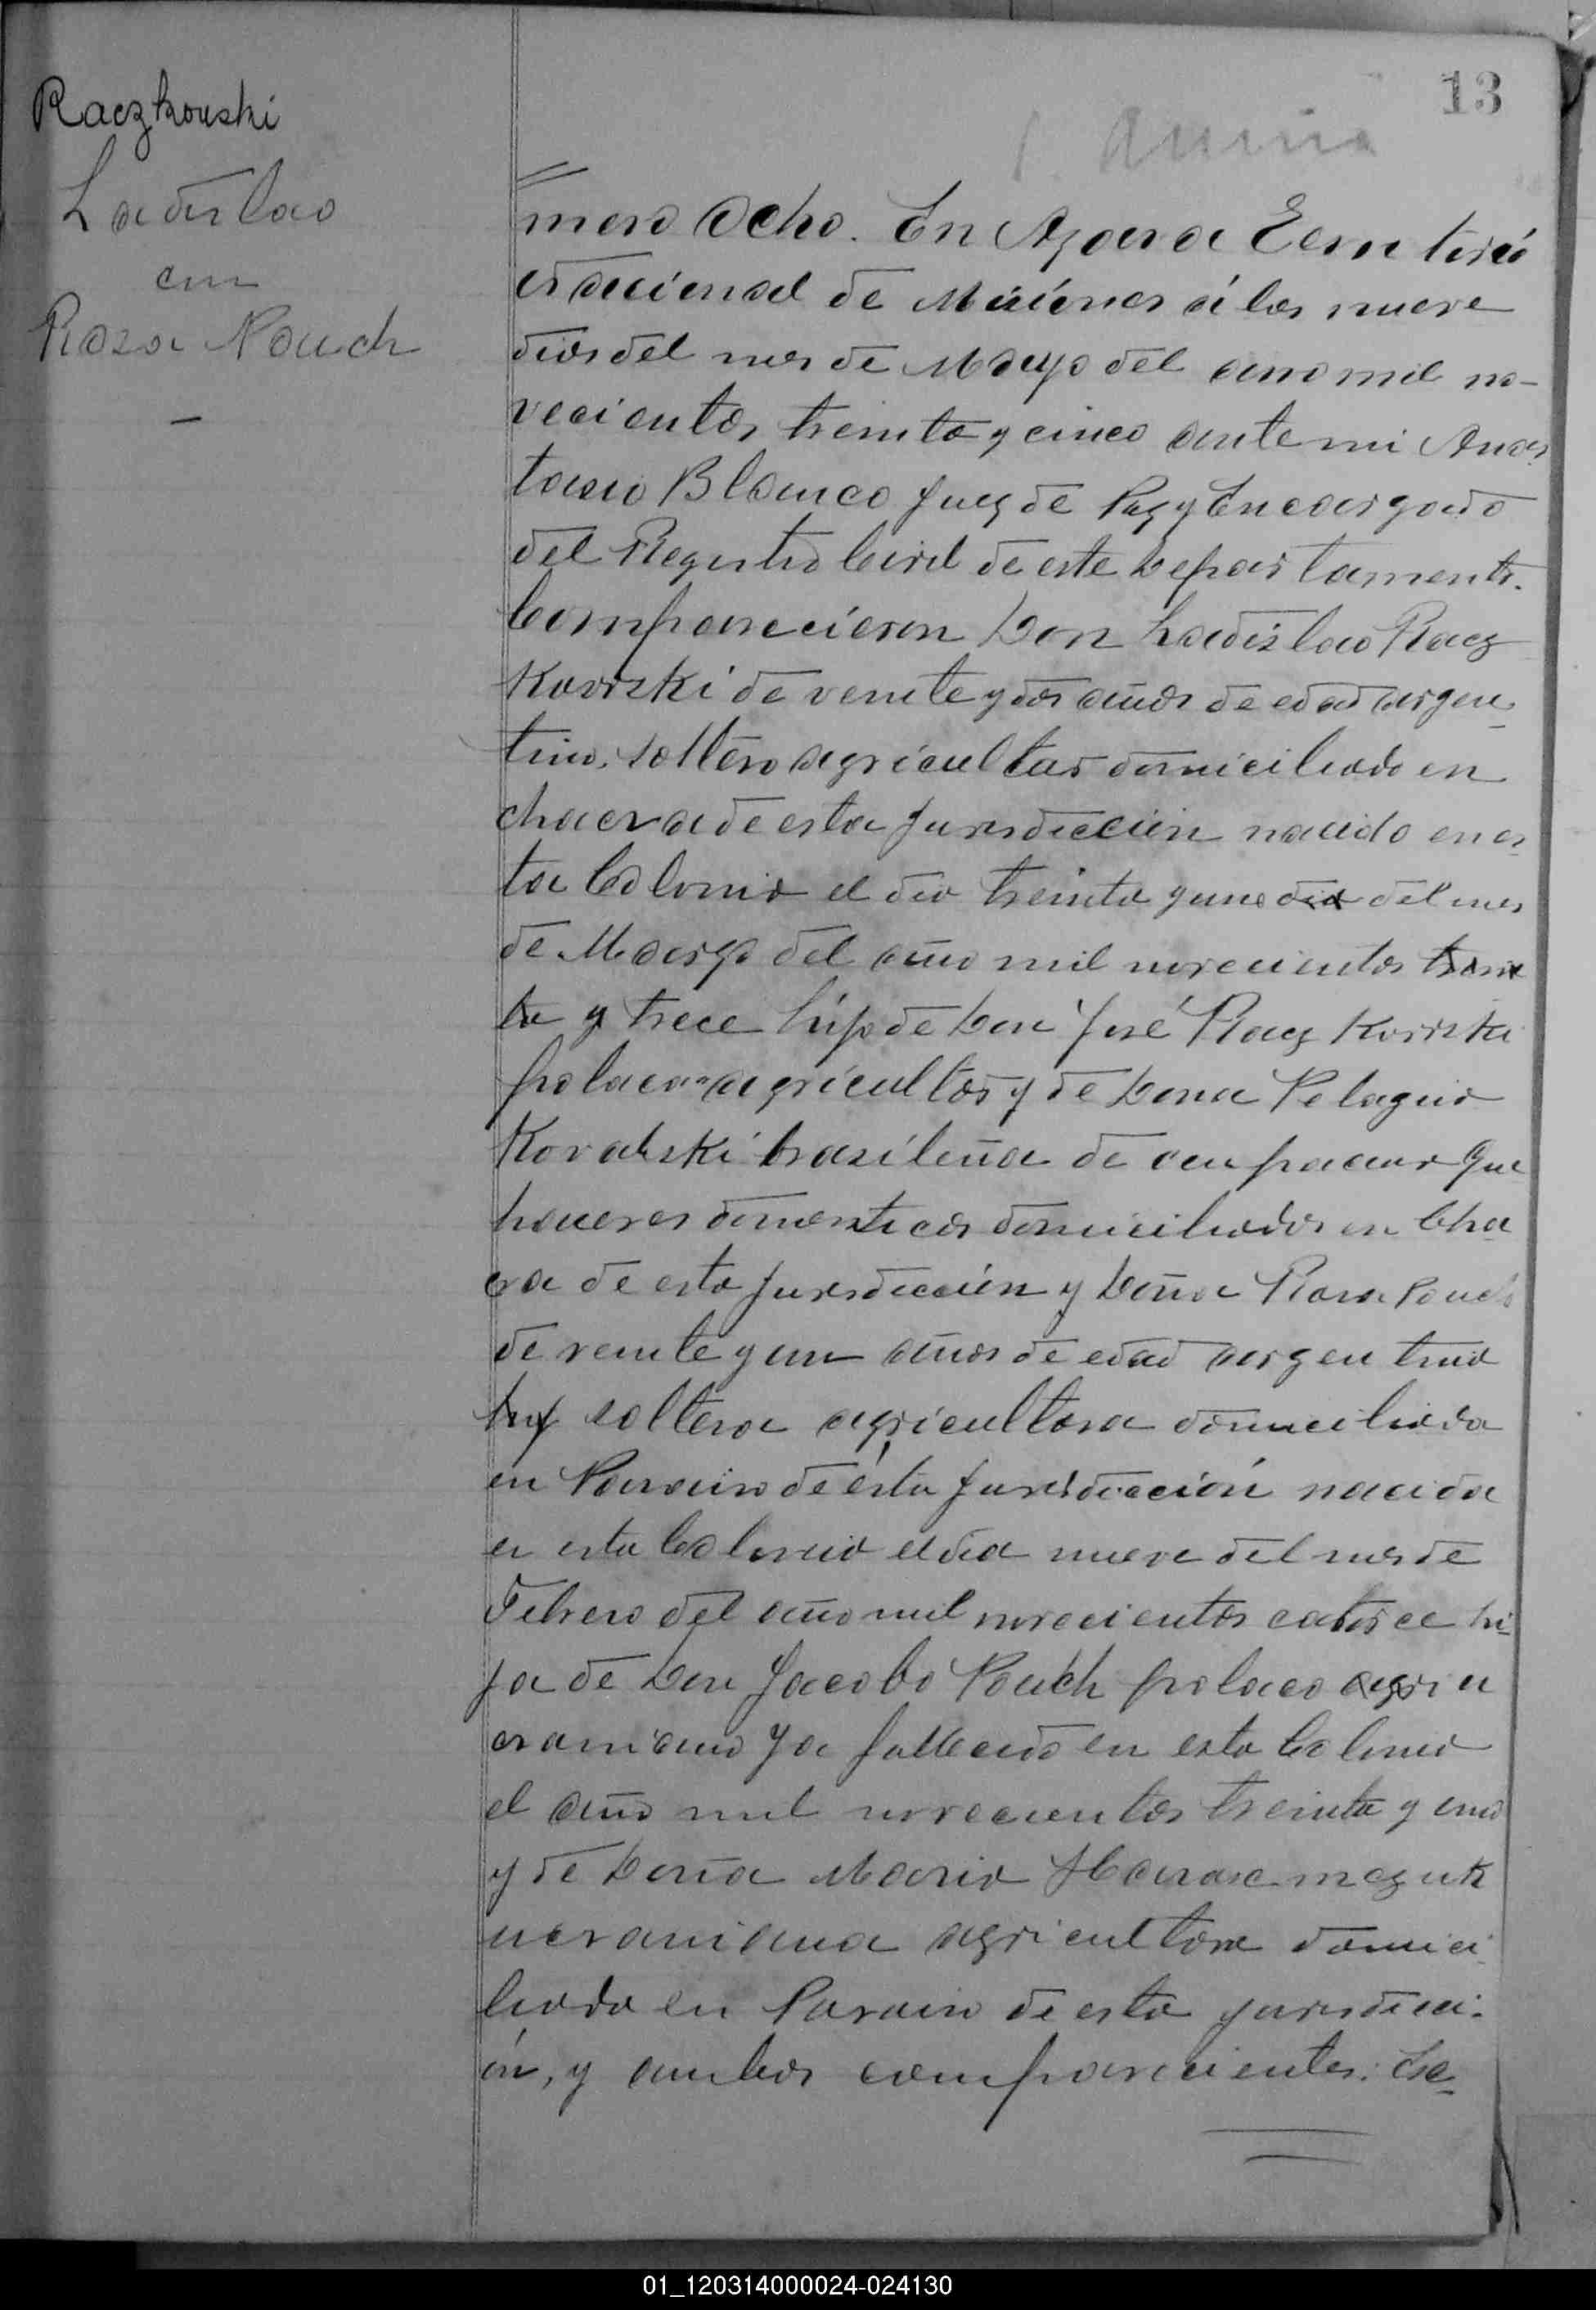 13
Raczkouski
Ladislao
con
Rosa Pauch
mero Ocho. En Azara Territorio
Nacional de Misiones á los nueve
dias del mes de Mayo del ano mil no-
vecientos treinta y cinco ante mi Anas
tacio Blanco Juez de Paz y Encargado
del Registro Civil de este Departamento.
Comparecieron Don Ladislao Racz
Kovvski de veinte y dos años de edad argen
tino, soltero agricultor domiciliado en
chacra de esta Jurisdiccion nacido en es
ta Colonia el dia treinta y uno dia del mes
de Marzo del año mil novecientos trein
ta y trece hijo de Don José Racz Kovvski
polaco agricultor y de Dona Pelagia
Kovalski brasileña de ocupacion que
haceres domesticos domiciliados en Cha
cra de esta Jurisdicción y Doña Rosa Pauch
de veinte y un años de edad argentina
soltera agricultora domiciliada
en Paraiso de ésta Jurisdicción nacida
en esta Colonia el dia nueve del mes de
Febrero del año mil novecientos catorce hi
ja de Don Jacobo Pauch polaco agri u
craniano ya fallecido en esta Colonia
el año mil novecientos treinta y uno
y de Doña Maria
ucraniana agricultora domici
liada en Paraiso de esta jurisdicci
ón, y ambos comparecientes:
01_120314000024-024130